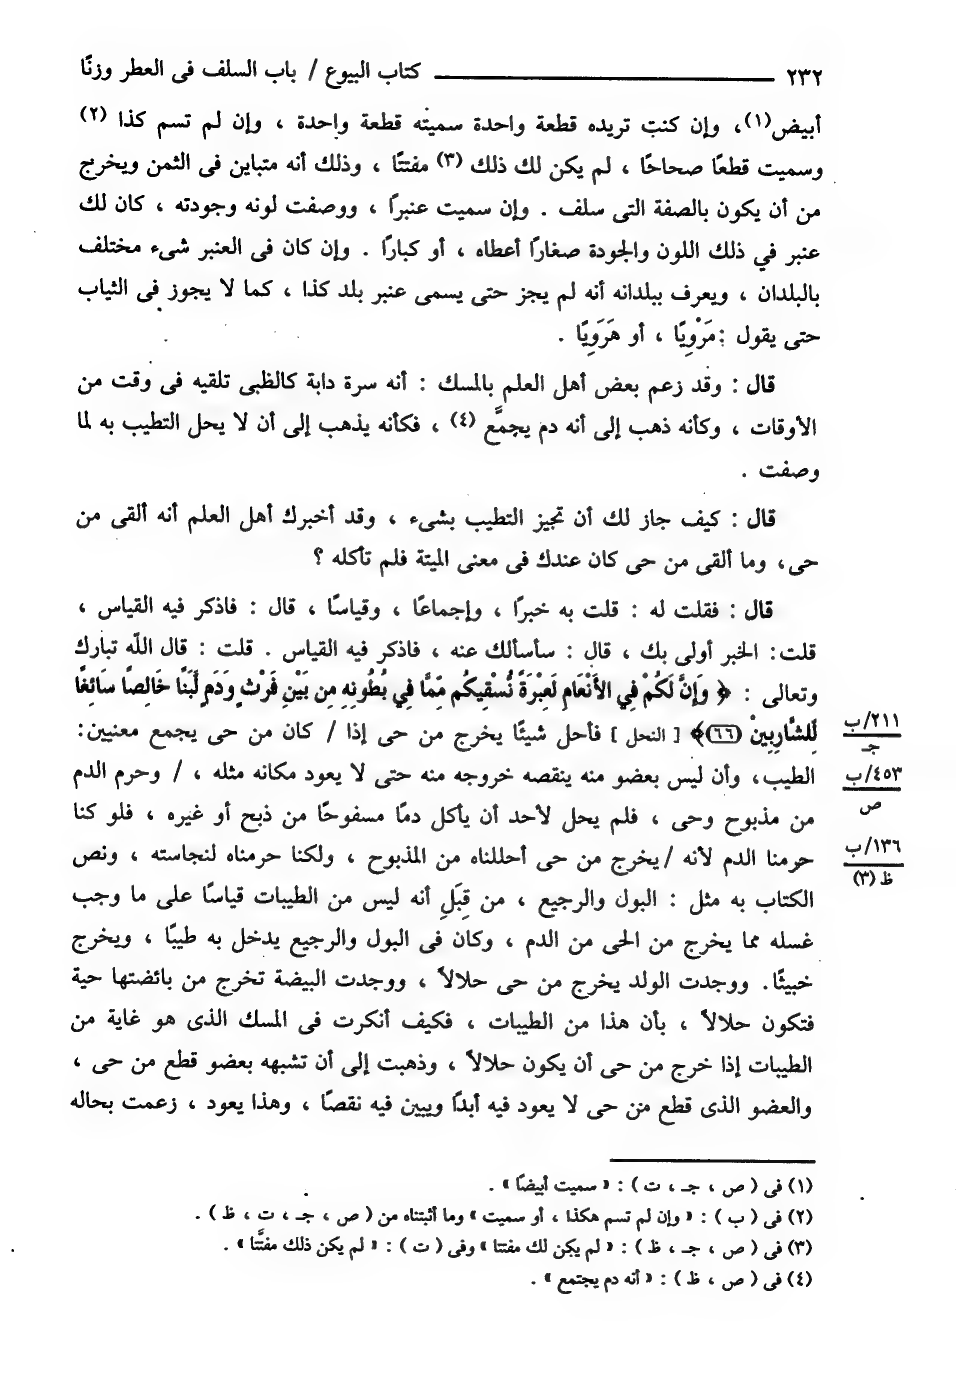 ٢٣٢ ــــــــــــ كتاب البيوع / باب السلف فى العطر وزنًا
أبيض(١)، وإن كنت تريده قطعة واحدة سميته قطعة واحدة ، وإن لم تسم كذا (٢)
وسميت قطعًا صحاحًا ، لم يكن لك ذلك (٣) مفتتًا ، وذلك أنه متباين فى الثمن ويخرج
من أن يكون بالصفة التى سلف . وإن سميت عنبرًا ، ووصفت لونه وجودته ، كان لك
عنبر في ذلك اللون والجودة صغارًا أعطاه ، أو كبارًا . وإن كان فى العنبر شىء مختلف
بالبلدان ، ويعرف ببلدانه أنه لم يجز حتى يسمى عنبر بلد كذا ، كما لا يجوز فى الثياب
حتى يقول : مَرْوِيًا ، أو هَرَوِيًا .
قال : وقد زعم بعض أهل العلم بالمسك : أنه سرة دابة كالظبى تلقيه فى وقت من
الأوقات ، وكأنه ذهب إلى أنه دم يجمَّع (٤) ، فكأنه يذهب إلى أن لا يحل التطيب به لما
وصفت .
قال : كيف جاز لك أن تجيز التطيب بشىء ، وقد أخبرك أهل العلم أنه ألقى من
حى، وما ألقى من حى كان عندك فى معنى الميتة فلم تأكله ؟
قال : فقلت له : قلت به خبرًا ، وإجماعًا ، وقياسًا ، قال : فاذكر فيه القياس ،
قلت: الخبر أولى بك ، قال : سأسألك عنه ، فاذكر فيه القياس . قلت : قال الله تبارك
وتعالى : ﴿ وَإِنَّ لَكُمْ فِي الأَنْعَامِ لَعِبْرَةً نُّسْقِيكُم مِّمَّا فِي بُطُونِهِ مِن بَيْنِ فَرْثٍ وَدَمٍ لَّبَنًا خَالِصًا سَائِغًا
لِّلشَّارِبِينَ (٦٦)﴾ [ النحل ] فأحل شيئًا يخرج من حى إذا / كان من حى يجمع معنيين:
٢١١/ب
جـ
الطيب، وأن ليس بعضو منه ينقصه خروجه منه حتى لا يعود مكانه مثله ، / وحرم الدم
٤٥٣/ب
ص
من مذبوح وحى ، فلم يحل لأحد أن يأكل دمًا مسفوحًا من ذبح أو غيره ، فلو كنا
حرمنا الدم لأنه / يخرج من حى أحللناه من المذبوح ، ولكنا حرمناه لنجاسته ، ونص
١٣٦/ب
ظ (٣)
الكتاب به مثل : البول والرجيع ، من قِبَلِ أنه ليس من الطيبات قياسًا على ما وجب
غسله مما يخرج من الحى من الدم ، وكان فى البول والرجيع يدخل به طيبًا ، ويخرج
خبيثًا. ووجدت الولد يخرج من حى حلالاً ، ووجدت البيضة تخرج من بائضتها حية
فتكون حلالاً ، بأن هذا من الطيبات ، فكيف أنكرت فى المسك الذى هو غاية من
الطيبات إذا خرج من حى أن يكون حلالاً ، وذهبت إلى أن تشبهه بعضو قطع من حى ،
والعضو الذى قطع من حى لا يعود فيه أبدًا ويبين فيه نقصًا ، وهذا يعود ، زعمت بحاله
(١) فى ( ص ، جـ ، ت ) : « سميت أبيضًا » .
(٢) فى ( ب ) : « وإن لم تسم هكذا ، أو سميت » وما أثبتناه من ( ص ، جـ ، ت ، ظ ) .
(٣) فى ( ص ، جـ ، ظ ) : « لم يكن لك مفتتا » وفى ( ت ) : « لم يكن ذلك مفتَّتا » .
(٤) فى ( ص ، ظ ) : « أنه دم يجتمع » .